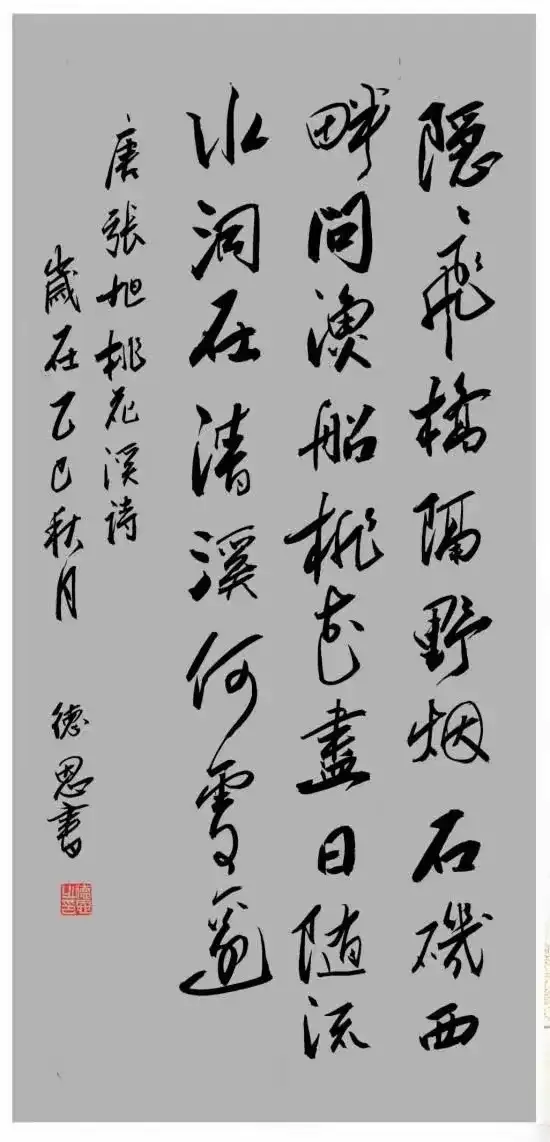 隐〻飛橋隔野烟石磯西
畔问漁船桃花盡日随流
水洞在清溪何處邊
唐張旭桃花溪诗
歲在乙巳秋月 德恩書